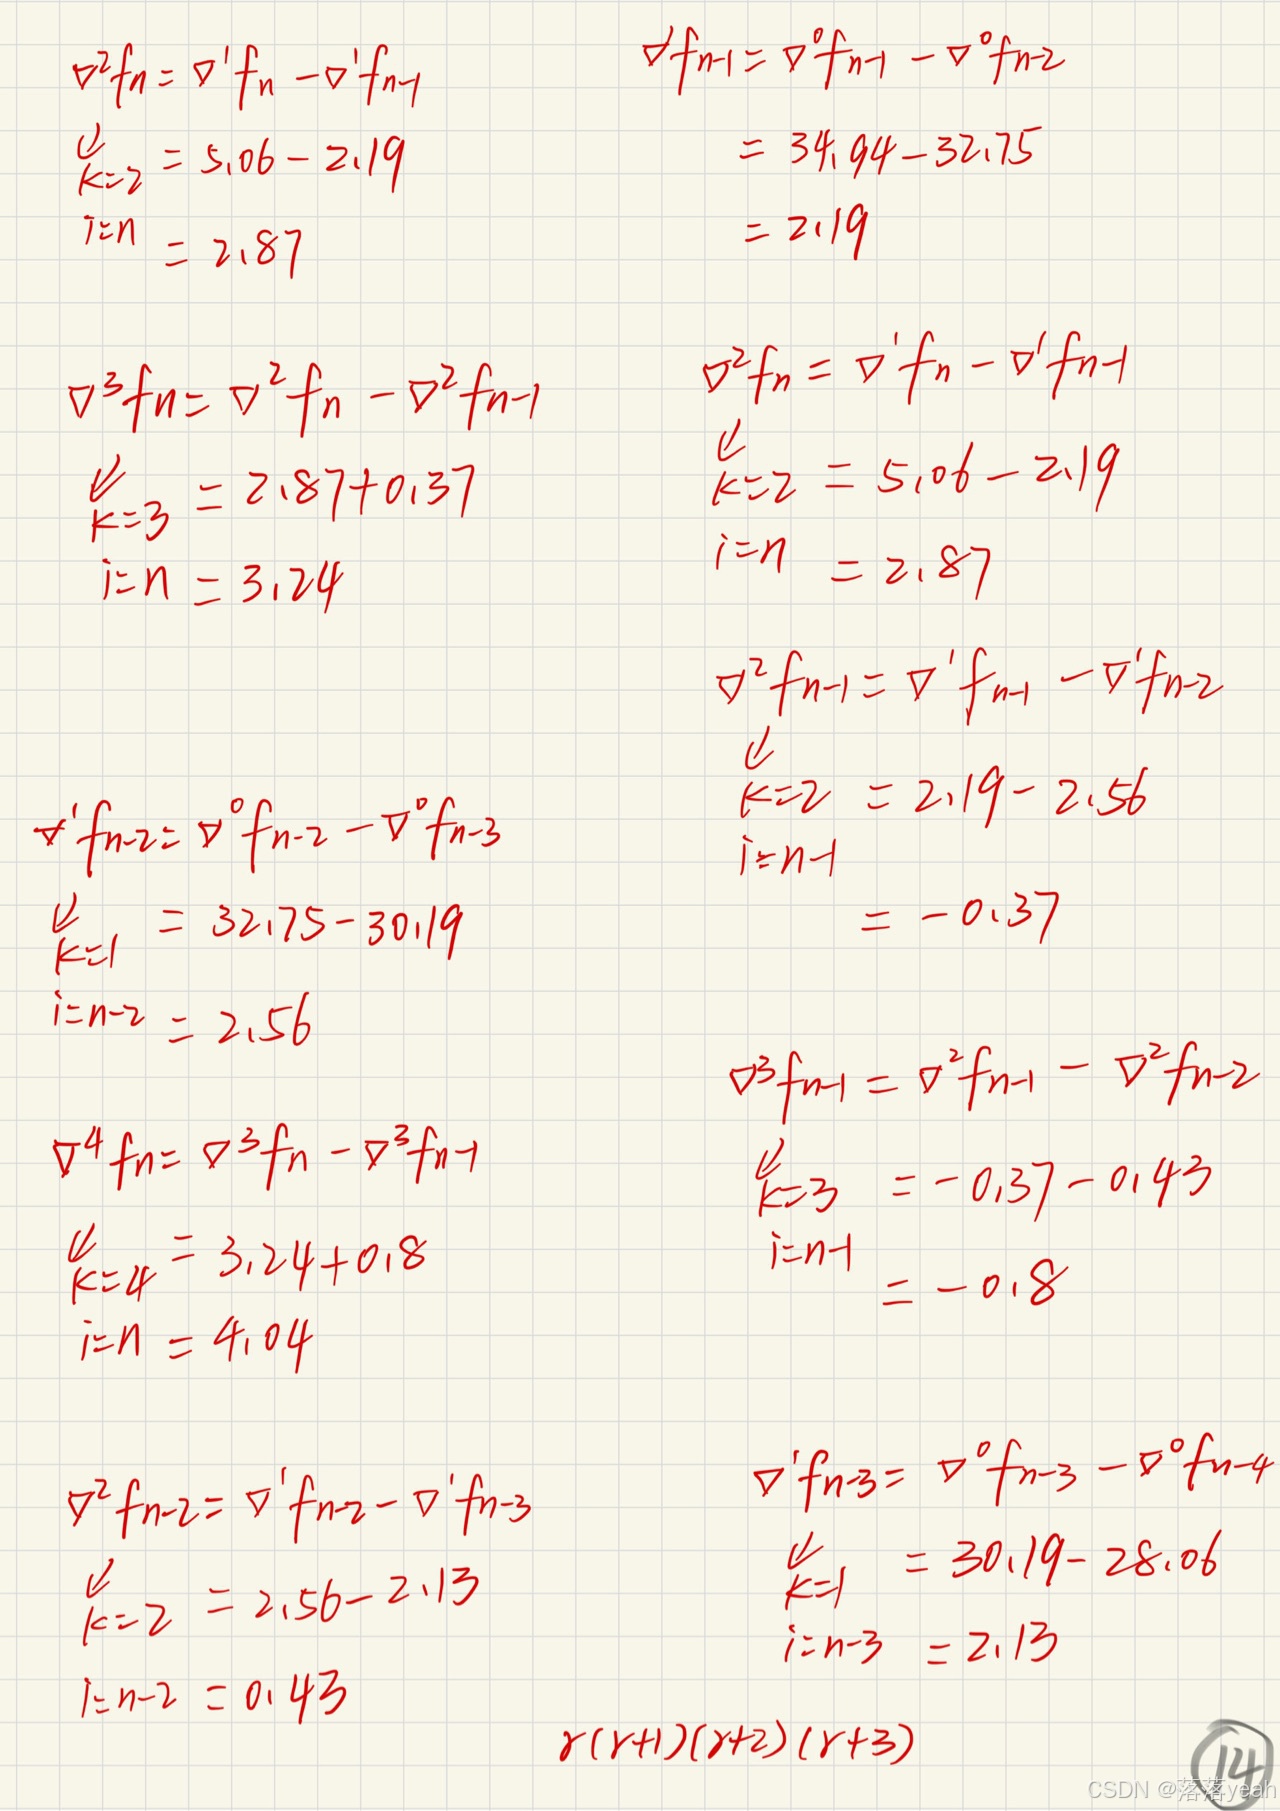 ∇²fn = ∇¹fn - ∇¹fn-1
k=2 = 5.06 - 2.19
i=n = 2.87
∇¹fn-1 = ∇⁰fn-1 - ∇⁰fn-2
= 34.94 - 32.75
= 2.19
∇³fn = ∇²fn - ∇²fn-1
k=3 = 2.87+0.37
i=n = 3.24
∇²fn = ∇¹fn - ∇¹fn-1
k=2 = 5.06 - 2.19
i=n = 2.87
∇²fn-1 = ∇¹fn-1 - ∇¹fn-2
k=2 = 2.19 - 2.56
i=n-1
= -0.37
∇¹fn-2 = ∇⁰fn-2 - ∇⁰fn-3
k=1 = 32.75 - 30.19
i=n-2 = 2.56
∇³fn-1 = ∇²fn-1 - ∇²fn-2
k=3 = -0.37 - 0.43
i=n-1
= -0.8
∇⁴fn = ∇³fn - ∇³fn-1
k=4 = 3.24+0.8
i=n = 4.04
∇²fn-2 = ∇¹fn-2 - ∇¹fn-3
k=2 = 2.56 - 2.13
i=n-2 = 0.43
∇¹fn-3 = ∇⁰fn-3 - ∇⁰fn-4
k=1 = 30.19 - 28.06
i=n-3 = 2.13
r(r+1)(r+2)(r+3)
14
CSDN @落落yeah